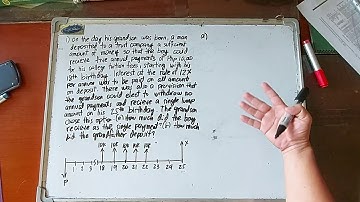 1) On the day his grandson was born, a man
deposited to a trust company a sufficient
amount of money so that the boy could
receive five annual payments of Php 10,000
for his college tuition fees, starting with his
18th birthday. Interest at the rate of 12%
per annum was to be paid on all amounts
on deposit. There was also a provision that
the grandson could elect to withdraw no
annual payments and receive a single lump
amount on his 25th birthday. The grandson
chose this option (a) How much did the boy
receive as the single payment? (b) How much
did the grandfather deposit?
a)
10K 10K 10K 10K 10K X
1 2 3 18 19 20 21 22 23 24 25
P